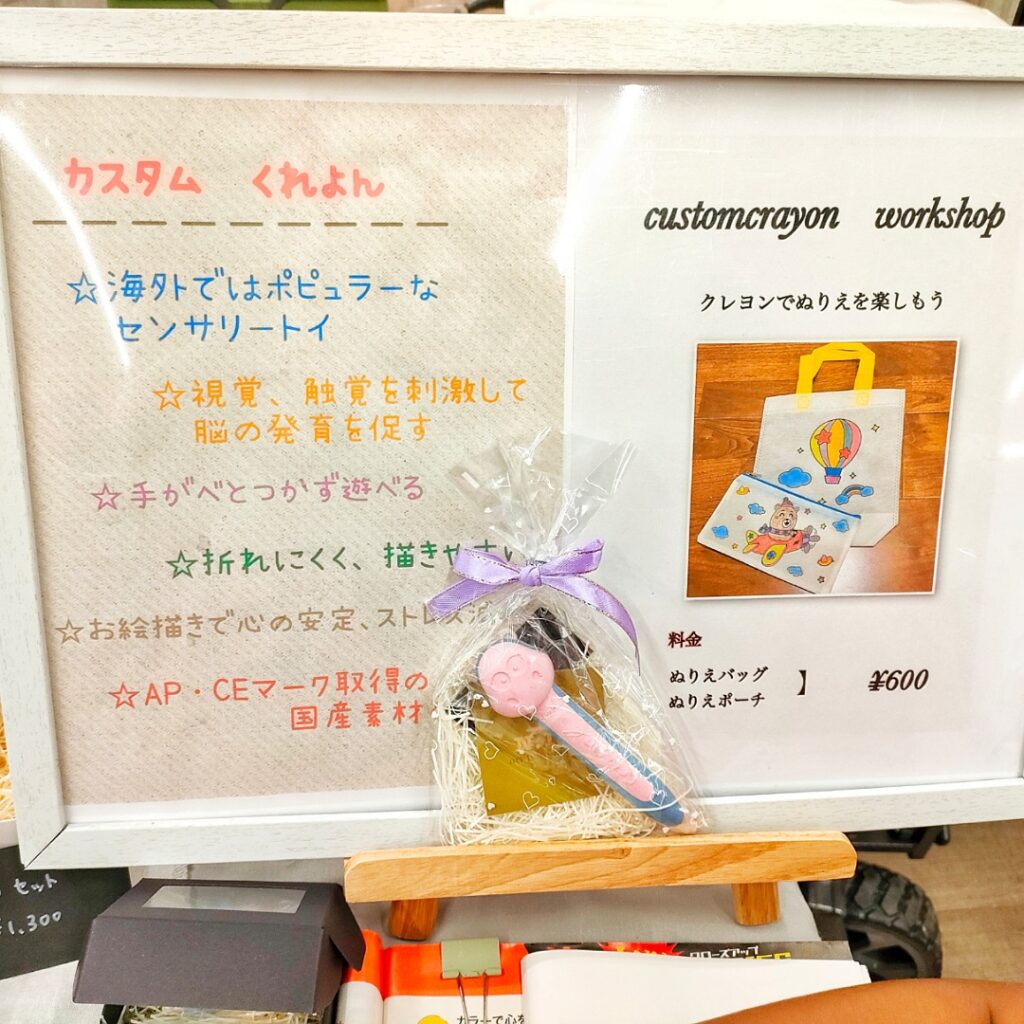 カスタム くれよん
☆海外ではポピュラーな
センサリートイ
☆視覚、触覚を刺激して
脳の発育を促す
☆手がべとつかず遊べる
☆折れにくく、描きやすい
☆お絵描きで心の安定、ストレス
☆AP・CEマーク取得の
国産素材
customcrayon workshop
クレヨンでぬりえを楽しもう
料金
ぬりえバッグ
ぬりえポーチ
】 ¥600
セット
¥1,300
クローズアップ
カラーで心を